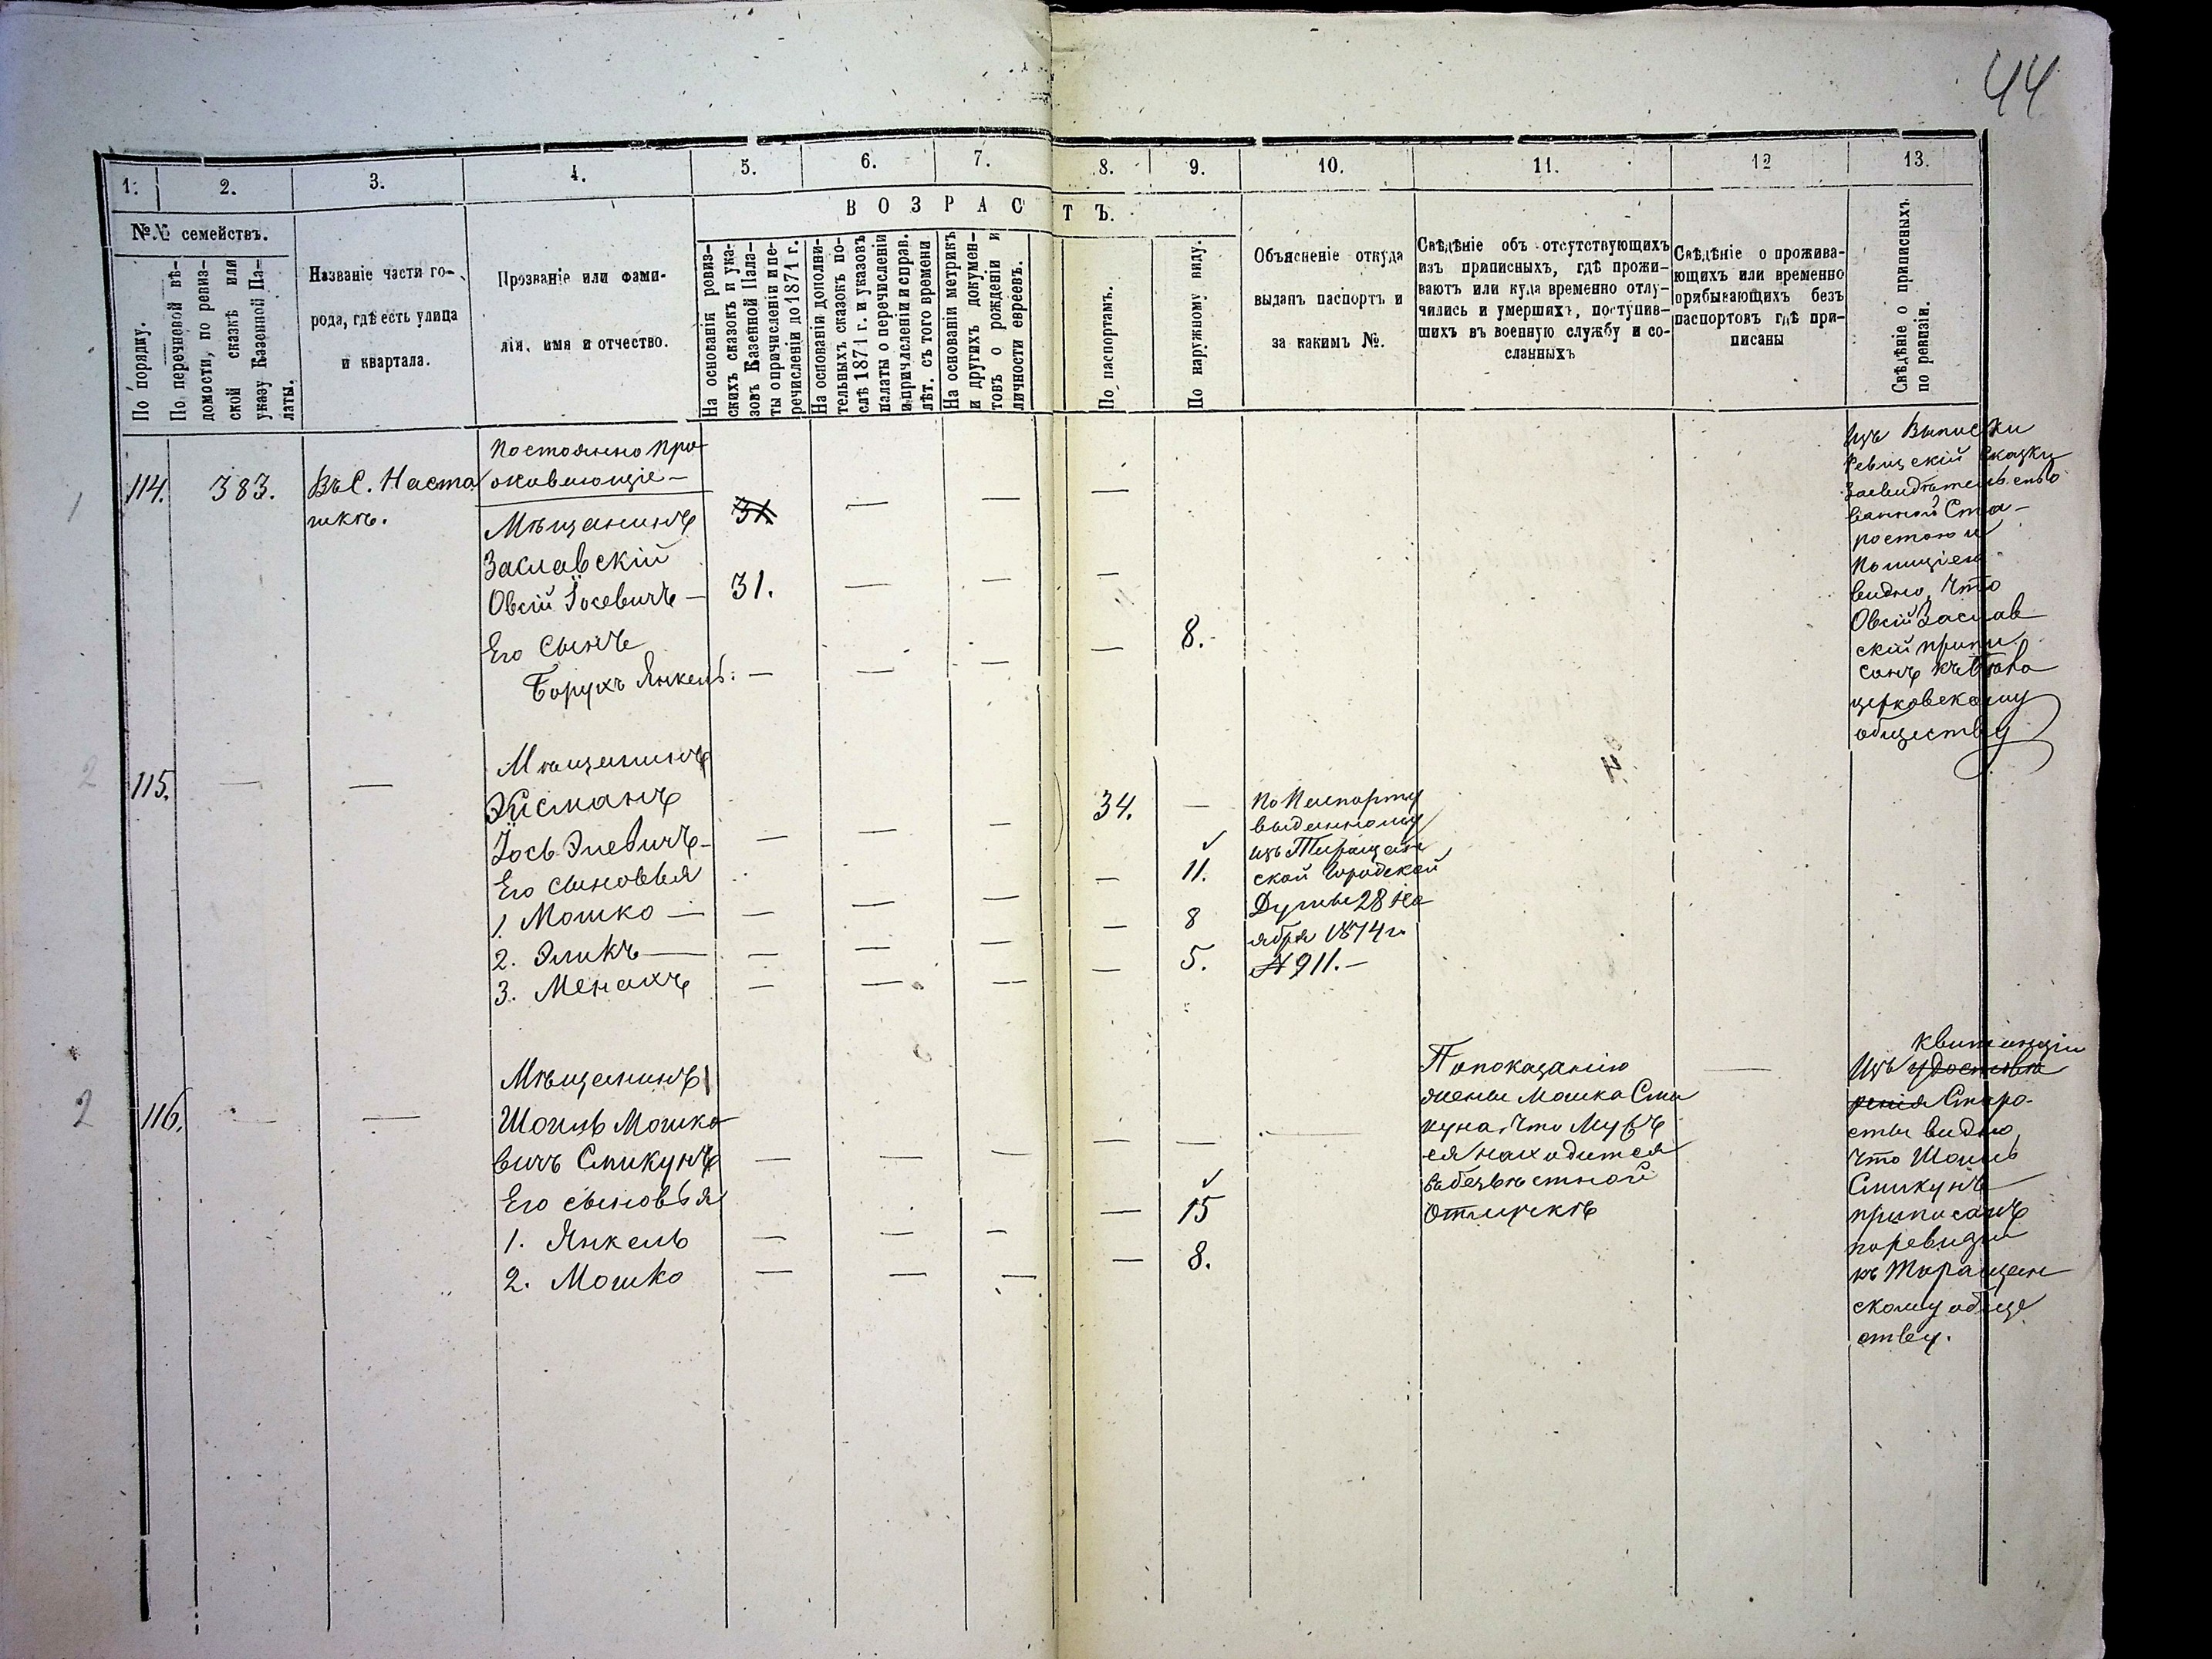 44
1. 2. 3. 4. 5. 6. 7. 8. 9. 10. 11. 12 13.
В О З Р А С Т Ъ.
№№ семействъ.
По порядку.
По перечневой вѣ-
домости, по ревиз-
ской сказкѣ или
указу Казенной Па-
латы.
Названіе части го-
рода, гдѣ есть улица
и квартала.
Прозваніе или фами-
лія, имя и отчество.
На основанія ревиз-
скихъ сказокъ и ука-
зовъ Казенной Пала-
ты о причисленіи и пе-
речисленіи до 1871 г.
На основаніи дополни-
тельныхъ сказокъ по-
слѣ 1871 г. и указовъ
палаты о перечисленіи
и причисленіи и справ.
лѣт. съ того времени
На основаніи метрикъ
и другихъ докумен-
товъ о рожденіи и
личности евреевъ.
По паспортамъ.
По наружному виду.
Объясненіе откуда
выданъ паспортъ и
за какимъ №.
Свѣдѣніе объ отсутствующихъ
изъ приписныхъ, гдѣ прожи-
ваютъ или куда временно отлу-
чились и умершихъ, поступив-
шихъ въ военную службу и со-
сланныхъ
Свѣдѣніе о прожива-
ющихъ или временно
прибывающихъ безъ
паспортовъ гдѣ при-
писаны
Свѣдѣніе о приписныхъ
по ревизіи.
1 114. 383.
Въ С. Наста
шкѣ.
Постоянно про
живающіе —
Мѣщанинъ
Заславскій
Овсій Іосевичъ — 31.
Его сынъ
Борухъ Янкель: — 8.
Изъ Выписки
Ревизскій Сказки
Засвидѣтельство
ванной Ста-
ростою и
Полиціею
видно, что
Овсій Заслав
скій припи
санъ къ Бѣло
церковскому
обществу
2 115. — —
Мѣщанинъ
Эйсманъ
Іось Элевичъ — 34. —
Его сыновья
1. Мошко — 11.
2. Эликъ — 8
3. Менахъ 5.
По Паспорту
выданному
изъ Таращан
ской Городской
Думы 28 Но
ября 1874 г.
№ 911. —
2 116. — —
Мѣщанинъ
Шоиль Мошко
вичъ Спикунъ
Его сыновья
1. Янкель 15
2. Мошко 8.
По показанію
жены Мошка Спи
куна, что мужъ
ея находится
въ безвѣстной
отлучкѣ
квитанціи
Изъ удостовѣ
ренія Старо-
сты видно,
что Шоиль
Спикунъ
приписанъ
по ревизіи
къ Таращан
скому обще
ству.